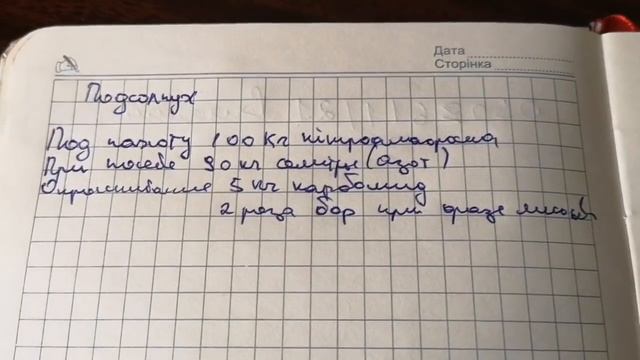 Дата
Сторінка
Подсолнух
Под пахоту 100 кг нітроамофоска
При посеве 90 кг селитры (азот)
Опрыскивание 5 кг карбомид
2 раза бор при фазе